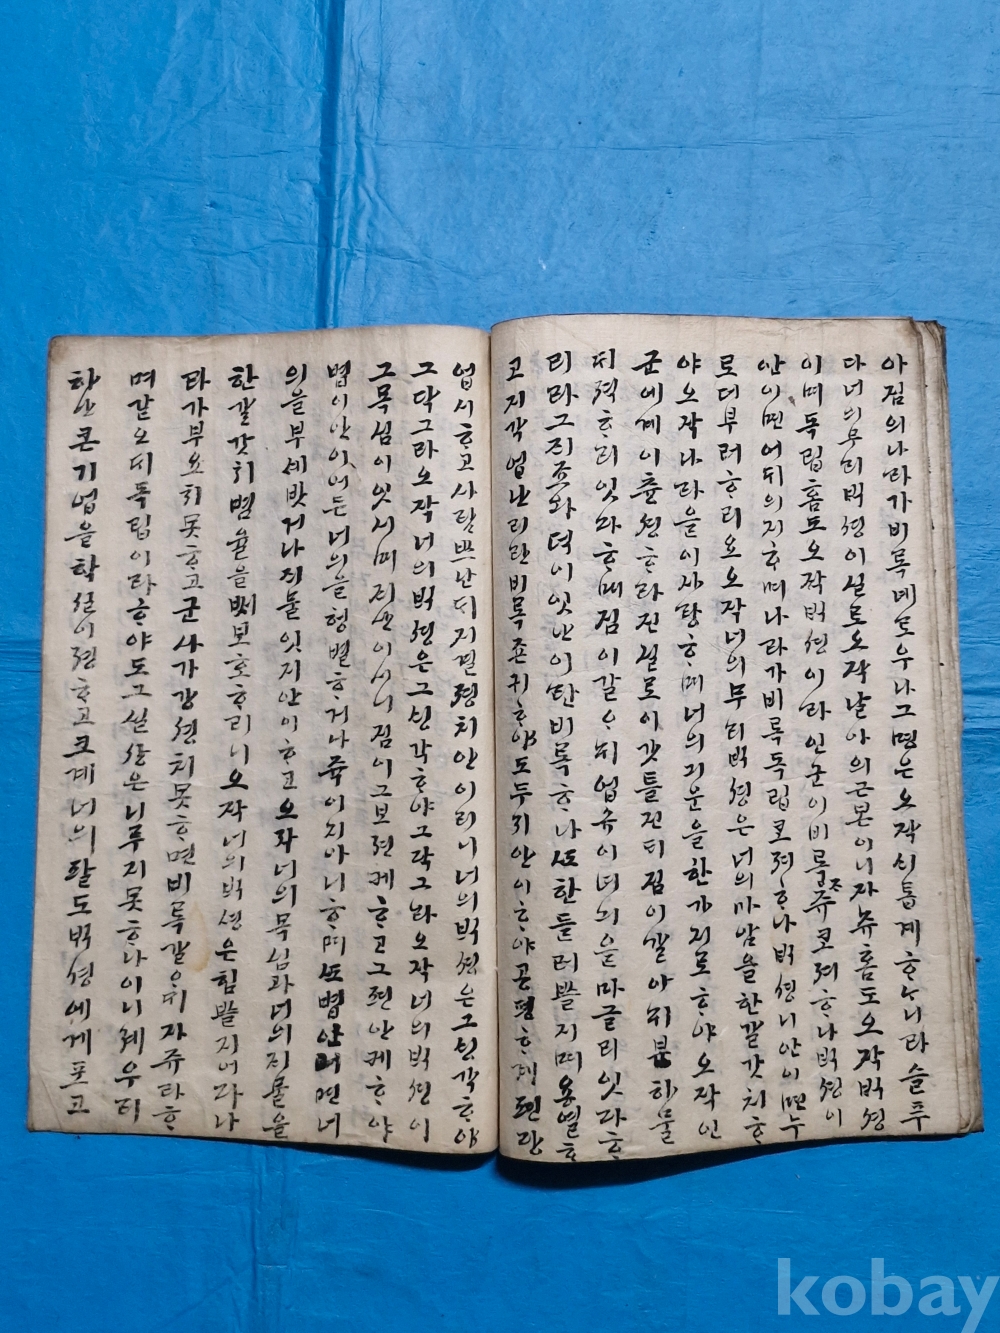 아짐의나라가비록네도우나그명은오작시통계ᄒᆞ누니라슬푸
다너의무리ᄇᆡᆨ셩이실로오작날아의근본이니자쥬홈도오작ᄇᆡᆨ셩
이며독립홈도오작ᄇᆡᆨ셩이라인군이비록ᄌᆞ쥬코져ᄒᆞ나ᄇᆡᆨ셩이
안이면어듸의지ᄒᆞ며나라가비록독립코져ᄒᆞ나ᄇᆡᆨ셩니안이면누
로더부러ᄒᆞ리요오작너의무듸ᄇᆡᆨ셩은너의마암을한갈갓치ᄒᆞ
야오작나라을이사랑ᄒᆞ며너의긔운을한가지로ᄒᆞ야오작인
군에게이츙셩ᄒᆞ라진실로이갓틀진ᄃᆡ짐이갈아ᄃᆡ
ᄃᆡ젹ᄒᆞ리잇다ᄒᆞ며짐이갈ᄋᆞᄃᆡ업슈이너긔을마글리잇다ᄒᆞ
리라그ᄌᆡ죠와덕이잇난이난비록ᄒᆞ나ᄯᅩ한들러ᄡᅳᆯ지며용열ᄒᆞ
코지각업난리난비록존귀ᄒᆞ야도두지안이ᄒᆞ야공평ᄒᆞ계
업시ᄒᆞ고사람ᄡᅳ난ᄃᆡ지졀졍치안이리니너의ᄇᆡᆨ셩은그ᄉᆡᆼ각ᄒᆞ야
그닥그라오작너의ᄇᆡᆨ셩은그ᄉᆡᆼ각ᄒᆞ야그닥그라오작너의ᄇᆡᆨ셩이
그목심이잇시며ᄌᆡ산이시니짐이그보젼케ᄒᆞ고그편안케ᄒᆞ야
볍이안이어든너의을형벌ᄒᆞ거나쥭이지아니ᄒᆞ며ᄯᅩ볍안이면너
의을부세밧거나ᄌᆡ물잇지안이ᄒᆞ고오작너의목심과너의ᄌᆡ물을
한갈갓치볍율을ᄡᅥ보호ᄒᆞ리니오작너의ᄇᆡᆨ셩은힘ᄡᅳᆯ지어다나
라가부요치못ᄒᆞ고군사가강셩치못ᄒᆞ면비록갈ᄋᆞᄃᆡ자쥬라ᄒᆞ
며갈오ᄃᆡ독립이라ᄒᆞ야도그실상은니루지못ᄒᆞ나이니졔우리
하난큰기업을학실이졍ᄒᆞ고크계너의팔도ᄇᆡᆨ셩에게포고